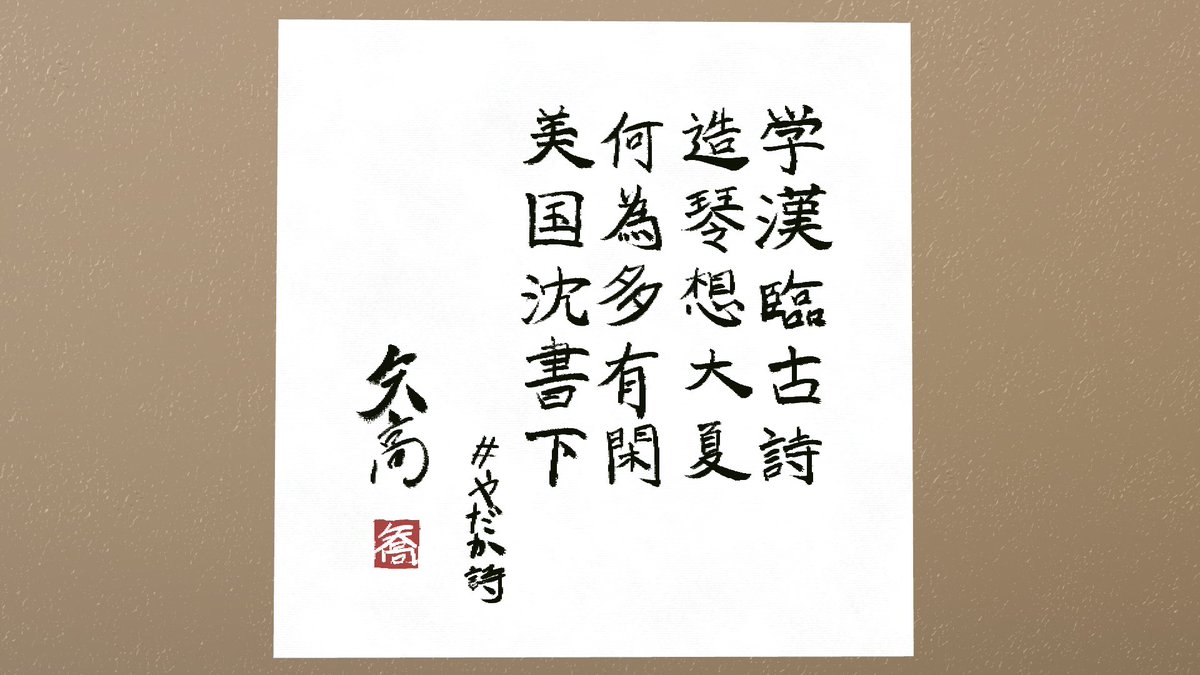 学漢臨古詩
造琴想大夏
何為多有閑
美国沈書下
#やだか詩
矢高
喬